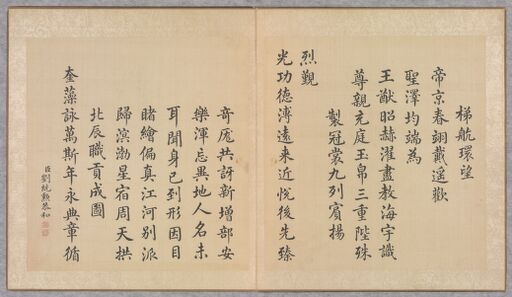 梯航環望
帝京春翊戴遙歡
聖澤均端為
王猷昭赫濯盡教海宇識
尊親充庭玉帛三重陛殊
製冠裳九列賓揚
烈覲
光功德溥遠来近悦後先臻
奇厖共訝新增部安
樂渾忘異地人名未
耳聞身已到形因目
睹繪偏真江河別派
歸溟渤星宿周天拱
北辰職貢成圖
奎藻詠萬斯年永典章循
臣劉統勲恭和